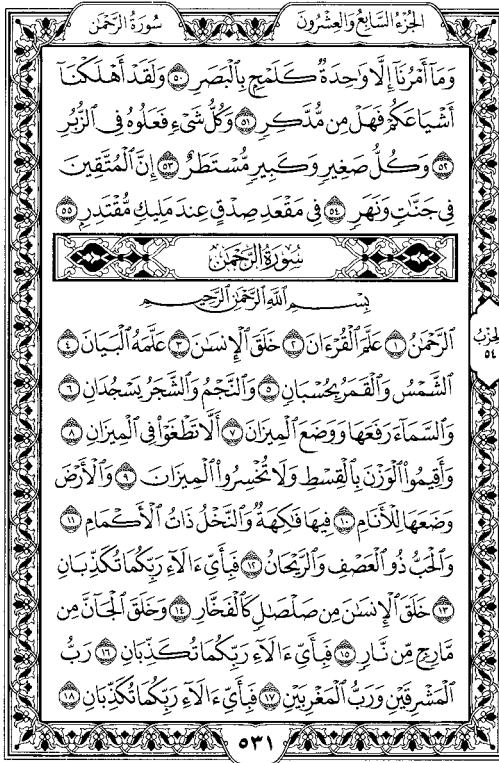 الجزء السابع والعشرون
سورة الرحمن
وَمَآ أَمْرُنَآ إِلَّا وَٰحِدَةٌ كَلَمْحٍۭ بِٱلْبَصَرِ ٥٠ وَلَقَدْ أَهْلَكْنَآ
أَشْيَاعَكُمْ فَهَلْ مِن مُّدَّكِرٍ ٥١ وَكُلُّ شَىْءٍ فَعَلُوهُ فِى ٱلزُّبُرِ
٥٢ وَكُلُّ صَغِيرٍ وَكَبِيرٍ مُّسْتَطَرٌ ٥٣ إِنَّ ٱلْمُتَّقِينَ
فِى جَنَّٰتٍ وَنَهَرٍ ٥٤ فِى مَقْعَدِ صِدْقٍ عِندَ مَلِيكٍ مُّقْتَدِرٍۭ ٥٥
سورة الرحمن
بِسْمِ ٱللَّهِ ٱلرَّحْمَٰنِ ٱلرَّحِيمِ
ٱلرَّحْمَٰنُ ١ عَلَّمَ ٱلْقُرْءَانَ ٢ خَلَقَ ٱلْإِنسَٰنَ ٣ عَلَّمَهُ ٱلْبَيَانَ ٤
ٱلشَّمْسُ وَٱلْقَمَرُ بِحُسْبَانٍ ٥ وَٱلنَّجْمُ وَٱلشَّجَرُ يَسْجُدَانِ ٦
وَٱلسَّمَآءَ رَفَعَهَا وَوَضَعَ ٱلْمِيزَانَ ٧ أَلَّا تَطْغَوْا۟ فِى ٱلْمِيزَانِ ٨
وَأَقِيمُوا۟ ٱلْوَزْنَ بِٱلْقِسْطِ وَلَا تُخْسِرُوا۟ ٱلْمِيزَانَ ٩ وَٱلْأَرْضَ
وَضَعَهَا لِلْأَنَامِ ١٠ فِيهَا فَٰكِهَةٌ وَٱلنَّخْلُ ذَاتُ ٱلْأَكْمَامِ ١١
وَٱلْحَبُّ ذُو ٱلْعَصْفِ وَٱلرَّيْحَانُ ١٢ فَبِأَىِّ ءَالَآءِ رَبِّكُمَا تُكَذِّبَانِ
١٣ خَلَقَ ٱلْإِنسَٰنَ مِن صَلْصَٰلٍ كَٱلْفَخَّارِ ١٤ وَخَلَقَ ٱلْجَآنَّ مِن
مَّارِجٍ مِّن نَّارٍ ١٥ فَبِأَىِّ ءَالَآءِ رَبِّكُمَا تُكَذِّبَانِ ١٦ رَبُّ
ٱلْمَشْرِقَيْنِ وَرَبُّ ٱلْمَغْرِبَيْنِ ١٧ فَبِأَىِّ ءَالَآءِ رَبِّكُمَا تُكَذِّبَانِ ١٨
الحزب
٥٤
٥٣١